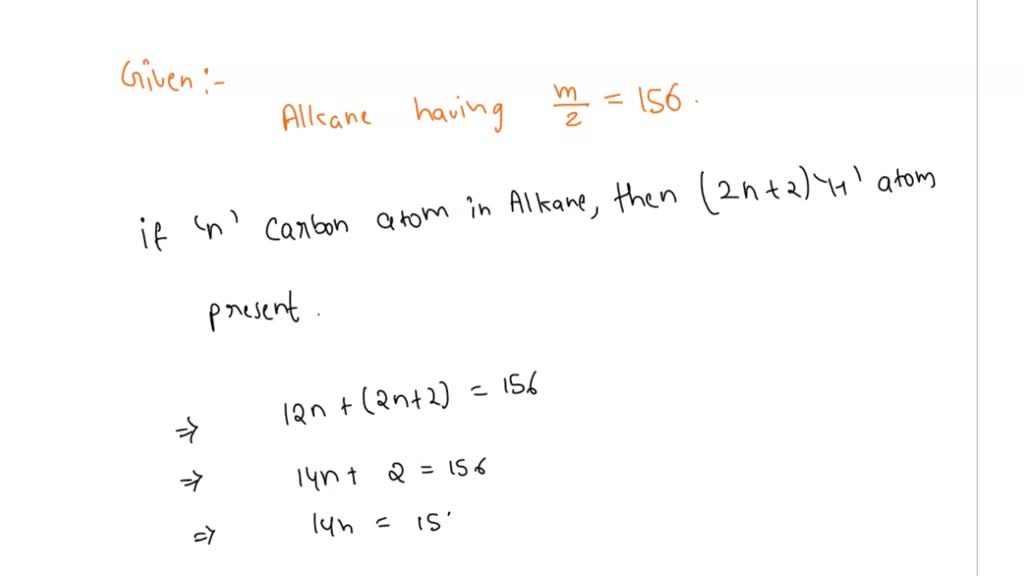 Given :-
Alkane having m/z = 156.
if 'n' Carbon atom in Alkane, then (2n+2) 'H' atom
present.
⇒ 12n + (2n+2) = 156
⇒ 14n + 2 = 156
⇒ 14n = 15